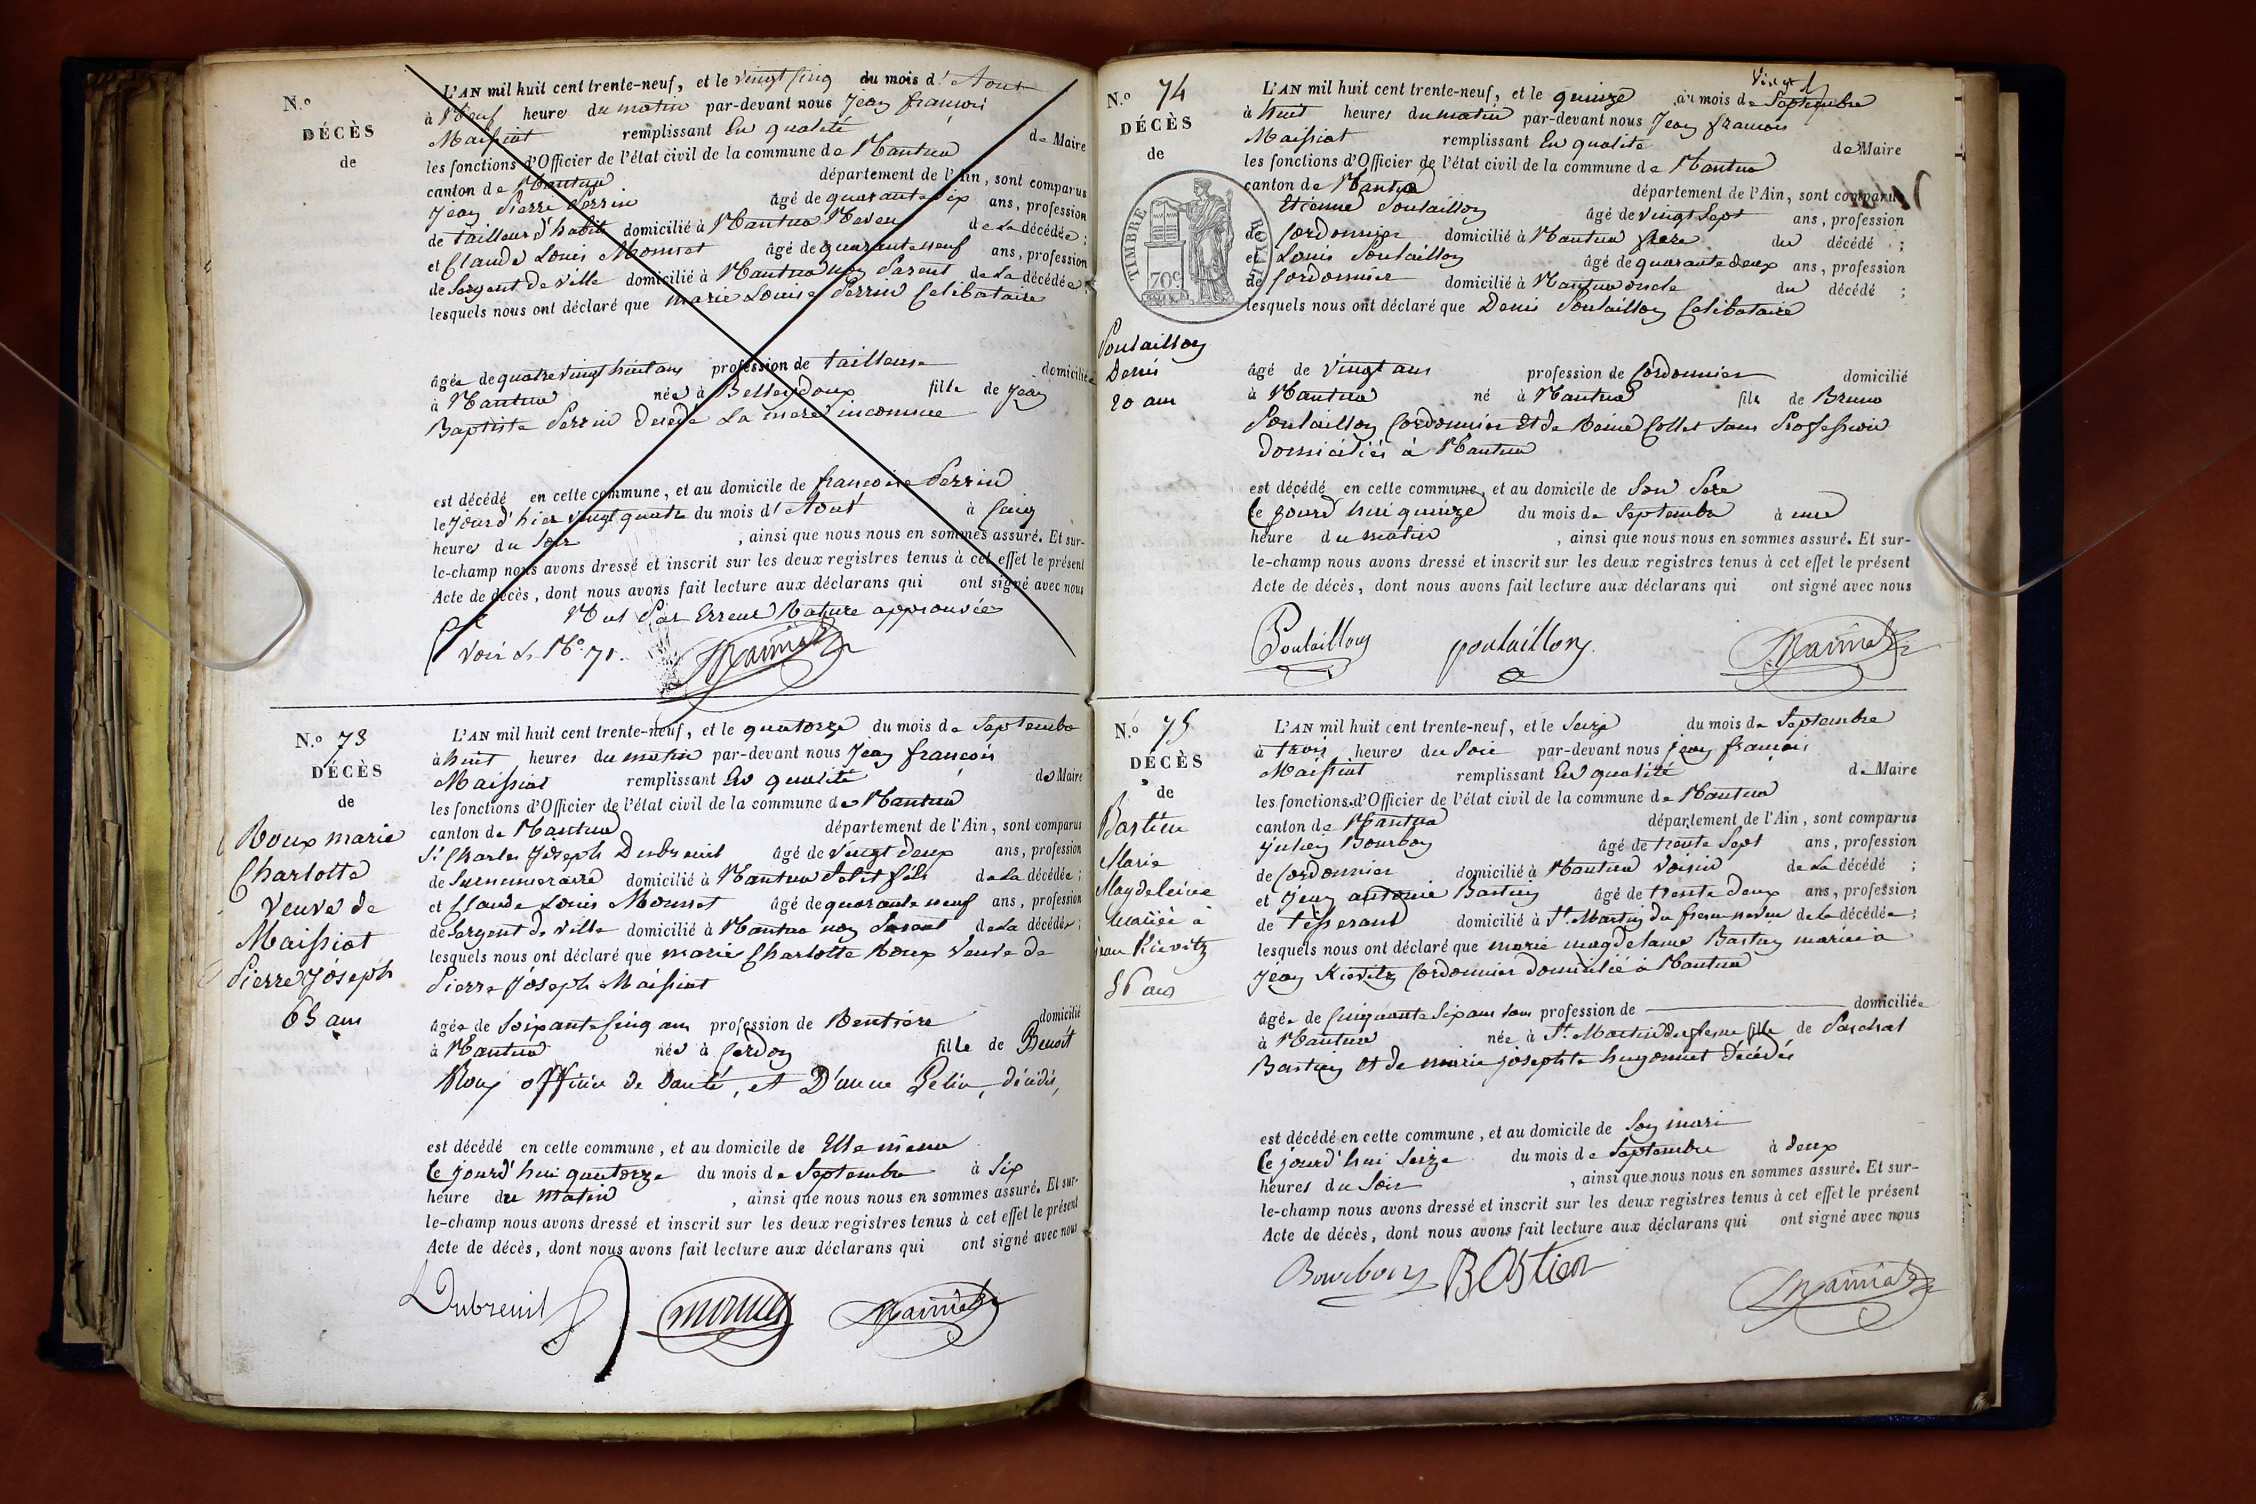 N.º
DÉCÈS
de
L'AN mil huit cent trente-neuf, et le vingt cinq du mois d' Aout
à Neuf heure du matin par-devant nous Jean françois
Maissiat remplissant En qualité de Maire
les fonctions d'Officier de l'état civil de la commune de Nantua
canton de Nantua département de l'Ain, sont comparus
Jean Pierre Perrin âgé de quarante six ans, profession
de tailleur d'habits domicilié à Nantua Neveu de La décédée;
et Claude Louis Mounet âgé de quarante neuf ans, profession
de Sergent de ville domicilié à Nantua non Parent de La décédée;
lesquels nous ont déclaré que marie Louise Perrin Celibataire
âgée de quatre vingt huit ans profession de tailleuse domiciliée
à Nantua née à Belleydoux fille de Jean
Baptiste Perrin Décédé La mere inconnue
est décédé en cette commune, et au domicile de françoise Perrin
le Jourd'hier vingt quatre du mois d' Aout à Cinq
heures du Soir , ainsi que nous nous en sommes assuré. Et sur-
le-champ nous avons dressé et inscrit sur les deux registres tenus à cet effet le présent
Acte de décès, dont nous avons fait lecture aux déclarans qui ont signé avec nous
Nul Par Erreur Rature approuvée
Voir N.º 71.
Maissiat
N.º 73
DÉCÈS
de
Roux marie
Charlotte
Veuve de
Maissiat
Pierre Joseph
65 ans
L'AN mil huit cent trente-neuf, et le quatorze du mois de Septembre
à huit heures du matin par-devant nous Jean françois
Maissiat remplissant En qualité de Maire
les fonctions d'Officier de l'état civil de la commune de Nantua
canton de Nantua département de l'Ain, sont comparus
Sr Charles Joseph Dubreuil âgé de vingt deux ans, profession
de Surnumeraire domicilié à Nantua Petit fils de La décédée;
et Claude Louis Mounet âgé de quarante neuf ans, profession
de Sergent de ville domicilié à Nantua non Parent de La décédée;
lesquels nous ont déclaré que marie Charlotte Roux Veuve de
Pierre Joseph Maissiat
âgée de Soixante Cinq ans profession de Rentiere domicilié
à Nantua née à Cerdon fille de Benoit
Roux officier de Santé, et D'anne Gelin, décédés,
est décédé en cette commune, et au domicile de Elle même
Ce jourd'hui quatorze du mois de Septembre à Six
heure du matin , ainsi que nous nous en sommes assuré. Et sur-
le-champ nous avons dressé et inscrit sur les deux registres tenus à cet effet le présent
Acte de décès, dont nous avons fait lecture aux déclarans qui ont signé avec nous
Dubreuil Mounet Maissiat
N.º 74
DÉCÈS
de
TIMBRE ROYAL
70c
Poulaillon
Denis
20 ans
L'AN mil huit cent trente-neuf, et le quinze du mois de Septembre
à huit heures du matin par-devant nous Jean françois
Maissiat remplissant En qualité de Maire
les fonctions d'Officier de l'état civil de la commune de Nantua
canton de Nantua département de l'Ain, sont comparus
Etienne Poulaillon âgé de vingt Sept ans, profession
de Cordonnier domicilié à Nantua frere du décédé ;
et Louis Poulaillon âgé de quarante deux ans, profession
de Cordonnier domicilié à Nantua oncle du décédé ;
lesquels nous ont déclaré que Denis Poulaillon Celibataire
âgé de vingt ans profession de Cordonnier domicilié
à Nantua né à Nantua fils de Bruno
Poulaillon Cordonnier Et de Reine Collet Sans Profession
domiciliés à Nantua
est décédé en cette commune, et au domicile de Son Pere
Ce jourd'hui quinze du mois de Septembre à une
heure du matin , ainsi que nous nous en sommes assuré. Et sur-
le-champ nous avons dressé et inscrit sur les deux registres tenus à cet effet le présent
Acte de décès, dont nous avons fait lecture aux déclarans qui ont signé avec nous
Poulaillon poulaillon Maissiat
N.º 75
DÉCÈS
de
Bastien
Marie
Magdeleine
mariée à
jean Kievitz
56 ans
L'AN mil huit cent trente-neuf, et le Seize du mois de Septembre
à trois heures du Soir par-devant nous Jean françois
Maissiat remplissant En qualité de Maire
les fonctions d'Officier de l'état civil de la commune de Nantua
canton de Nantua département de l'Ain, sont comparus
Julien Bourbon âgé de trente Sept ans, profession
de Cordonnier domicilié à Nantua Voisin de La décédé ;
et Jean antoine Bastien âgé de trente deux ans, profession
de tisserand domicilié à St. Martin du frene neveu de La décédée;
lesquels nous ont déclaré que marie magdelaine Bastien mariée à
Jean Kievitz Cordonnier domicilié à Nantua
âgée de Cinquante Six ans Sans profession de domiciliée
à Nantua née à St. Martin du fresne fille de Paschal
Bastien et de marie josephte hugonnet décédés
est décédé en cette commune, et au domicile de Son mari
Ce jourd'hui Seize du mois de Septembre à deux
heures du Soir , ainsi que nous nous en sommes assuré. Et sur-
le-champ nous avons dressé et inscrit sur les deux registres tenus à cet effet le présent
Acte de décès, dont nous avons fait lecture aux déclarans qui ont signé avec nous
Bourbon BAStien Maissiat